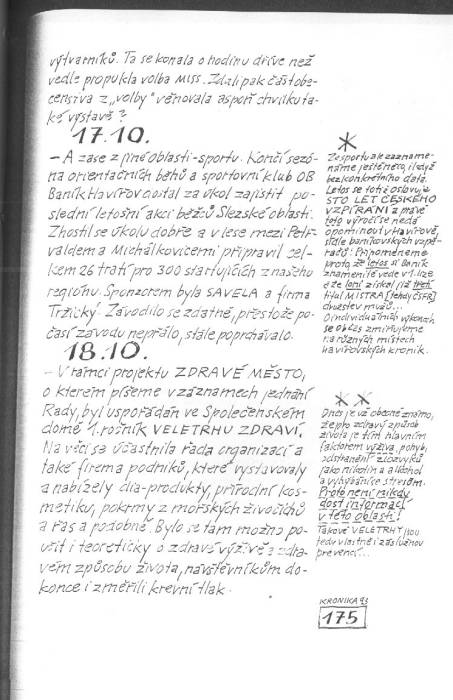 výtvarníků. Ta se konala o hodinu dříve než
vedle propukla volba MISS. Zdalipak část obe-
censtva z „volby" věnovala aspoň chvilku ta-
ké výstavě?
17.10.
– A zase z jiné oblasti - sportu. Končí sezó-
na orientačních běhů a sportovní klub OB
Baník Havířov dostal za úkol zajistit po-
slední letošní akci běžců Slezské oblasti.
Zhostil se úkolu dobře a v lese mezi Petř-
valdem a Michálkovicemi připravil cel-
kem 26 tratí pro 300 startujících z našeho
regionu. Sponzorem byla SAVELA a firma
Tržický. Závodilo se zdatně, přestože po-
časí závodu nepřálo, stále poprchávalo.
18.10.
– V rámci projektu ZDRAVÉ MĚSTO,
o kterém píšeme v záznamech jednání
Rady, byl uspořádán ve Společenském
domě 1. ročník VELETRHU ZDRAVÍ.
Na věci se účastnila řada organizací a
také firem a podniků, které vystavovaly
a nabízely dia-produkty, přírodní kos-
metiku, pokrmy z mořských živočichů
a řas a podobně. Bylo se tam možno po-
učit i teoreticky o zdravé výživě a zdra-
vém způsobu života, návštěvníkům do-
konce i změřili krevní tlak.
*
Ze sportu ale zazname-
náme ještě něco, i když
bez konkrétního data.
Letos se totiž oslavuje
STO LET ČESKÉHO
VZPÍRÁNÍ a právě
toto výročí se nedá
opominout v Havířově,
sídle baníkovských vzpě-
račů! Připomeňme
proto, že letos si Baník
znamenitě vede v 1. lize
a že loni získal již třetí
titul MISTRA (tehdy ČSFR)
družstev mužů...
O individuálních výkonech
se občas zmiňujeme
na různých místech
havířovských kronik.
* *
Dnes je už obecně známo,
že pro zdravý způsob
života je třemi hlavním
faktorem výživa, pohyb,
odstranění zlozvyků
jako nikotin a alkohol
a vyhýbání se stresům.
Proto není nikdy
dost informací
v této oblasti!
Takové VELETRHY jsou
tedy vlastně i záslužnou
prevencí...
KRONIKA 93
175